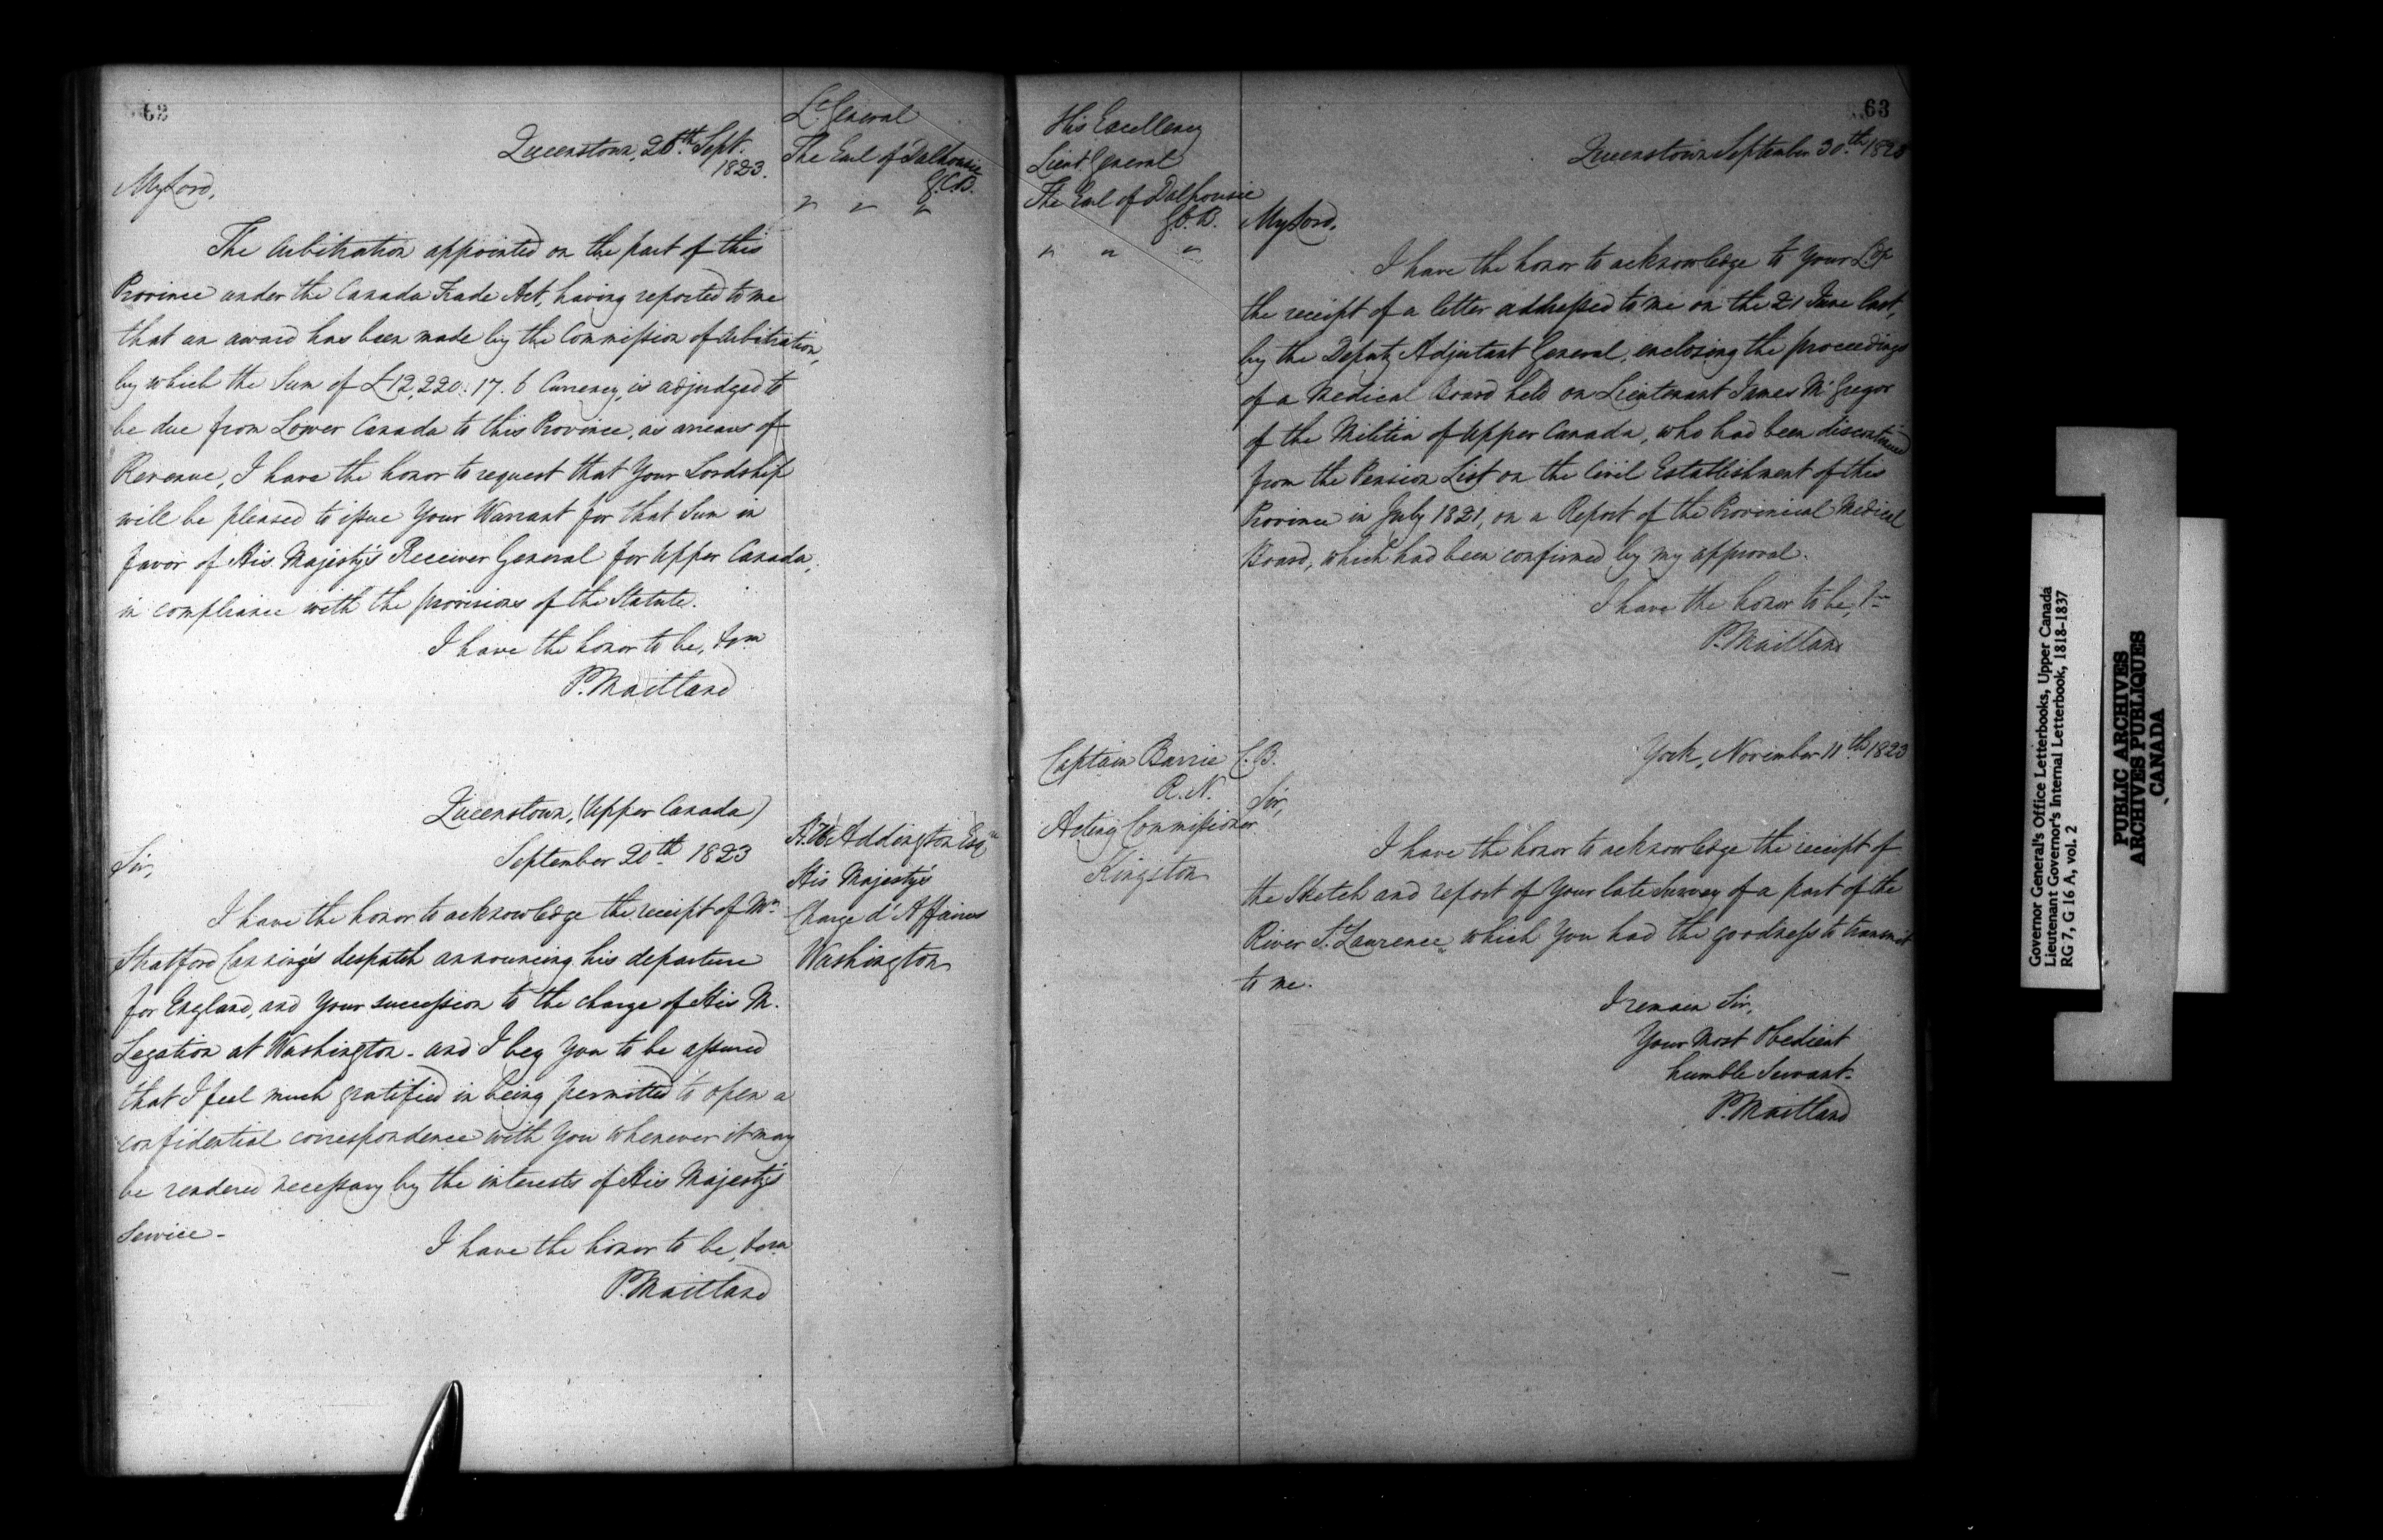 62
Lt. General
The Earl of Dalhousie
G.C.B.
" " "
Queenstown, 26th. Sept.
1823.
My Lord,
The Arbitration appointed on the part of this
Province under the Canada Trade Act, having reported to me
that an award has been made by the Commission of Arbitration,
by which the Sum of £12,220. 17. 6 Currency, is adjudged to
be due from Lower Canada to this Province, as arrears of
Revenue, I have the honor to request that Your Lordship
will be pleased to issue Your Warrant for that Sum in
favor of His Majesty's Receiver General for Upper Canada,
in compliance with the provisions of the Statute.
I have the honor to be,
P. Maitland
Queenstown, (Upper Canada)
September 20th 1823
Addington Esqr
His Majesty's
Charge d'Affaires
Washington
Sir,
I have the honor to acknowledge the receipt of Mr.
Stratford Canning's despatch announcing his departure
for England, and Your succession to the charge of His M.
Legation at Washington - and I beg You to be assured
that I feel much gratified in being permitted to open a
confidential correspondence with You whenever it may
be rendered necessary by the interests of His Majesty's
Service -
I have the honor to be,
P. Maitland
63
His Excellency
Lieut. General
The Earl of Dalhousie
G.C.B.
" " "
Queenstown September 30th. 1823
My Lord,
I have the honor to acknowledge to Your Lp
the receipt of a letter addressed to me on the 21 June last,
by the Deputy Adjutant General, enclosing the proceedings
of a Medical Board held on Lieutenant James McGregor
of the Militia of Upper Canada, who had been discontinued
from the Pension List on the Civil Establishment of this
Province in July 1821, on a Report of the Provincial Medical
Board, which had been confirmed by my approval.
I have the honor to be,
P. Maitland
Captain Barrie C.B.
R.N.
Acting Commissioner
Kingston
York, November 11th. 1823
Sir,
I have the honor to acknowledge the receipt of
the Sketch and report of Your late Survey of a part of the
River St. Laurence, which You had the goodness to transmit
to me.
I remain Sir,
Your Most Obedient
humble Servant.
P. Maitland
Governor General's Office Letterbooks, Upper Canada
Lieutenant Governor's Internal Letterbook, 1818-1837
RG 7, G 16 A, vol. 2
PUBLIC ARCHIVES
ARCHIVES PUBLIQUES
CANADA